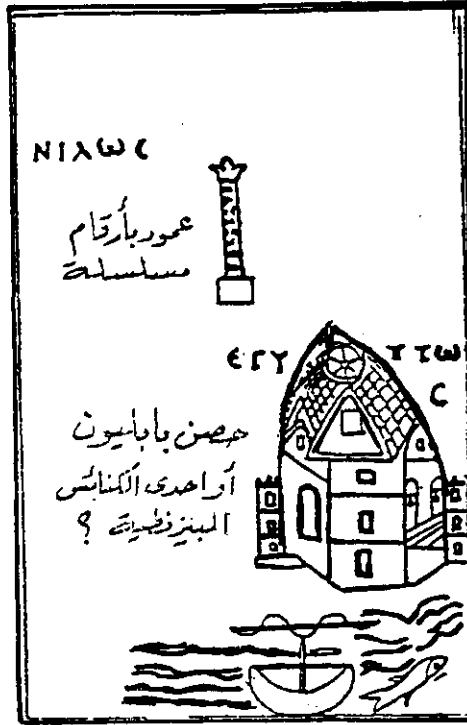 ΝΙΛωC
عمود بأرقام
مسلسلة
حصن بابليون
أو احدى الكنائس
البيزنطية ؟